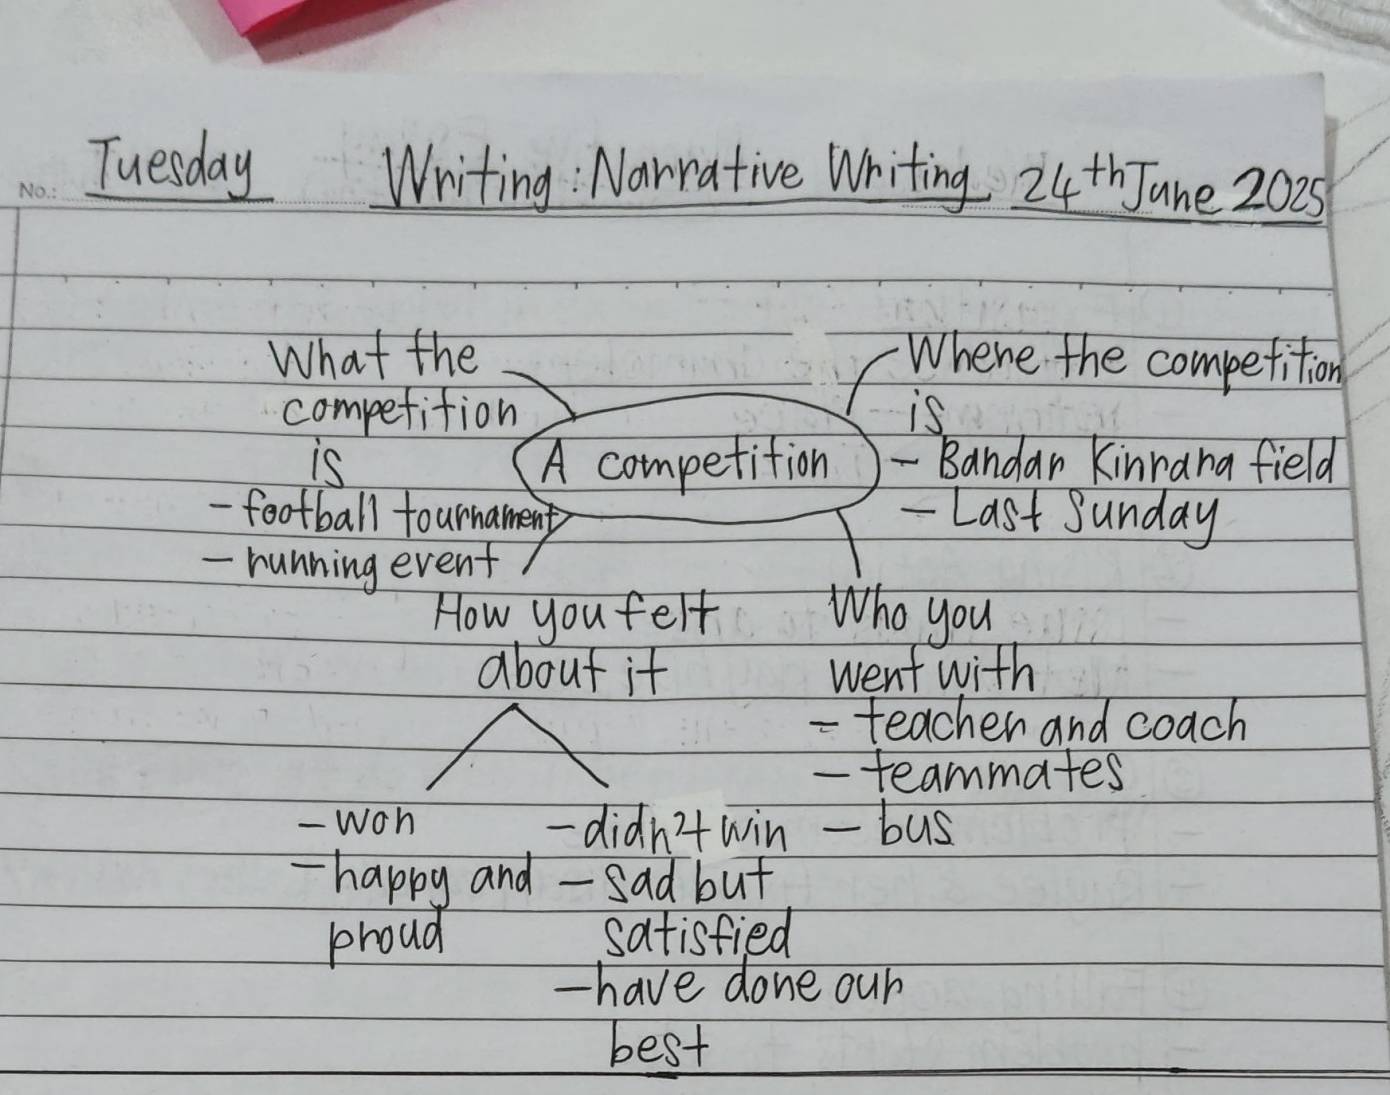 No.: Tuesday Writing: Narrative Writing 24th June 2025
What the
competition
is
- football tournament
- running event
A competition
Where the competition
is
- Bandar Kinrara field
- Last Sunday
How you felt
about it
- won
- happy and
proud
- didn't win
- sad but
satisfied
- have done our
best
Who you
went with
- teacher and coach
- teammates
- bus